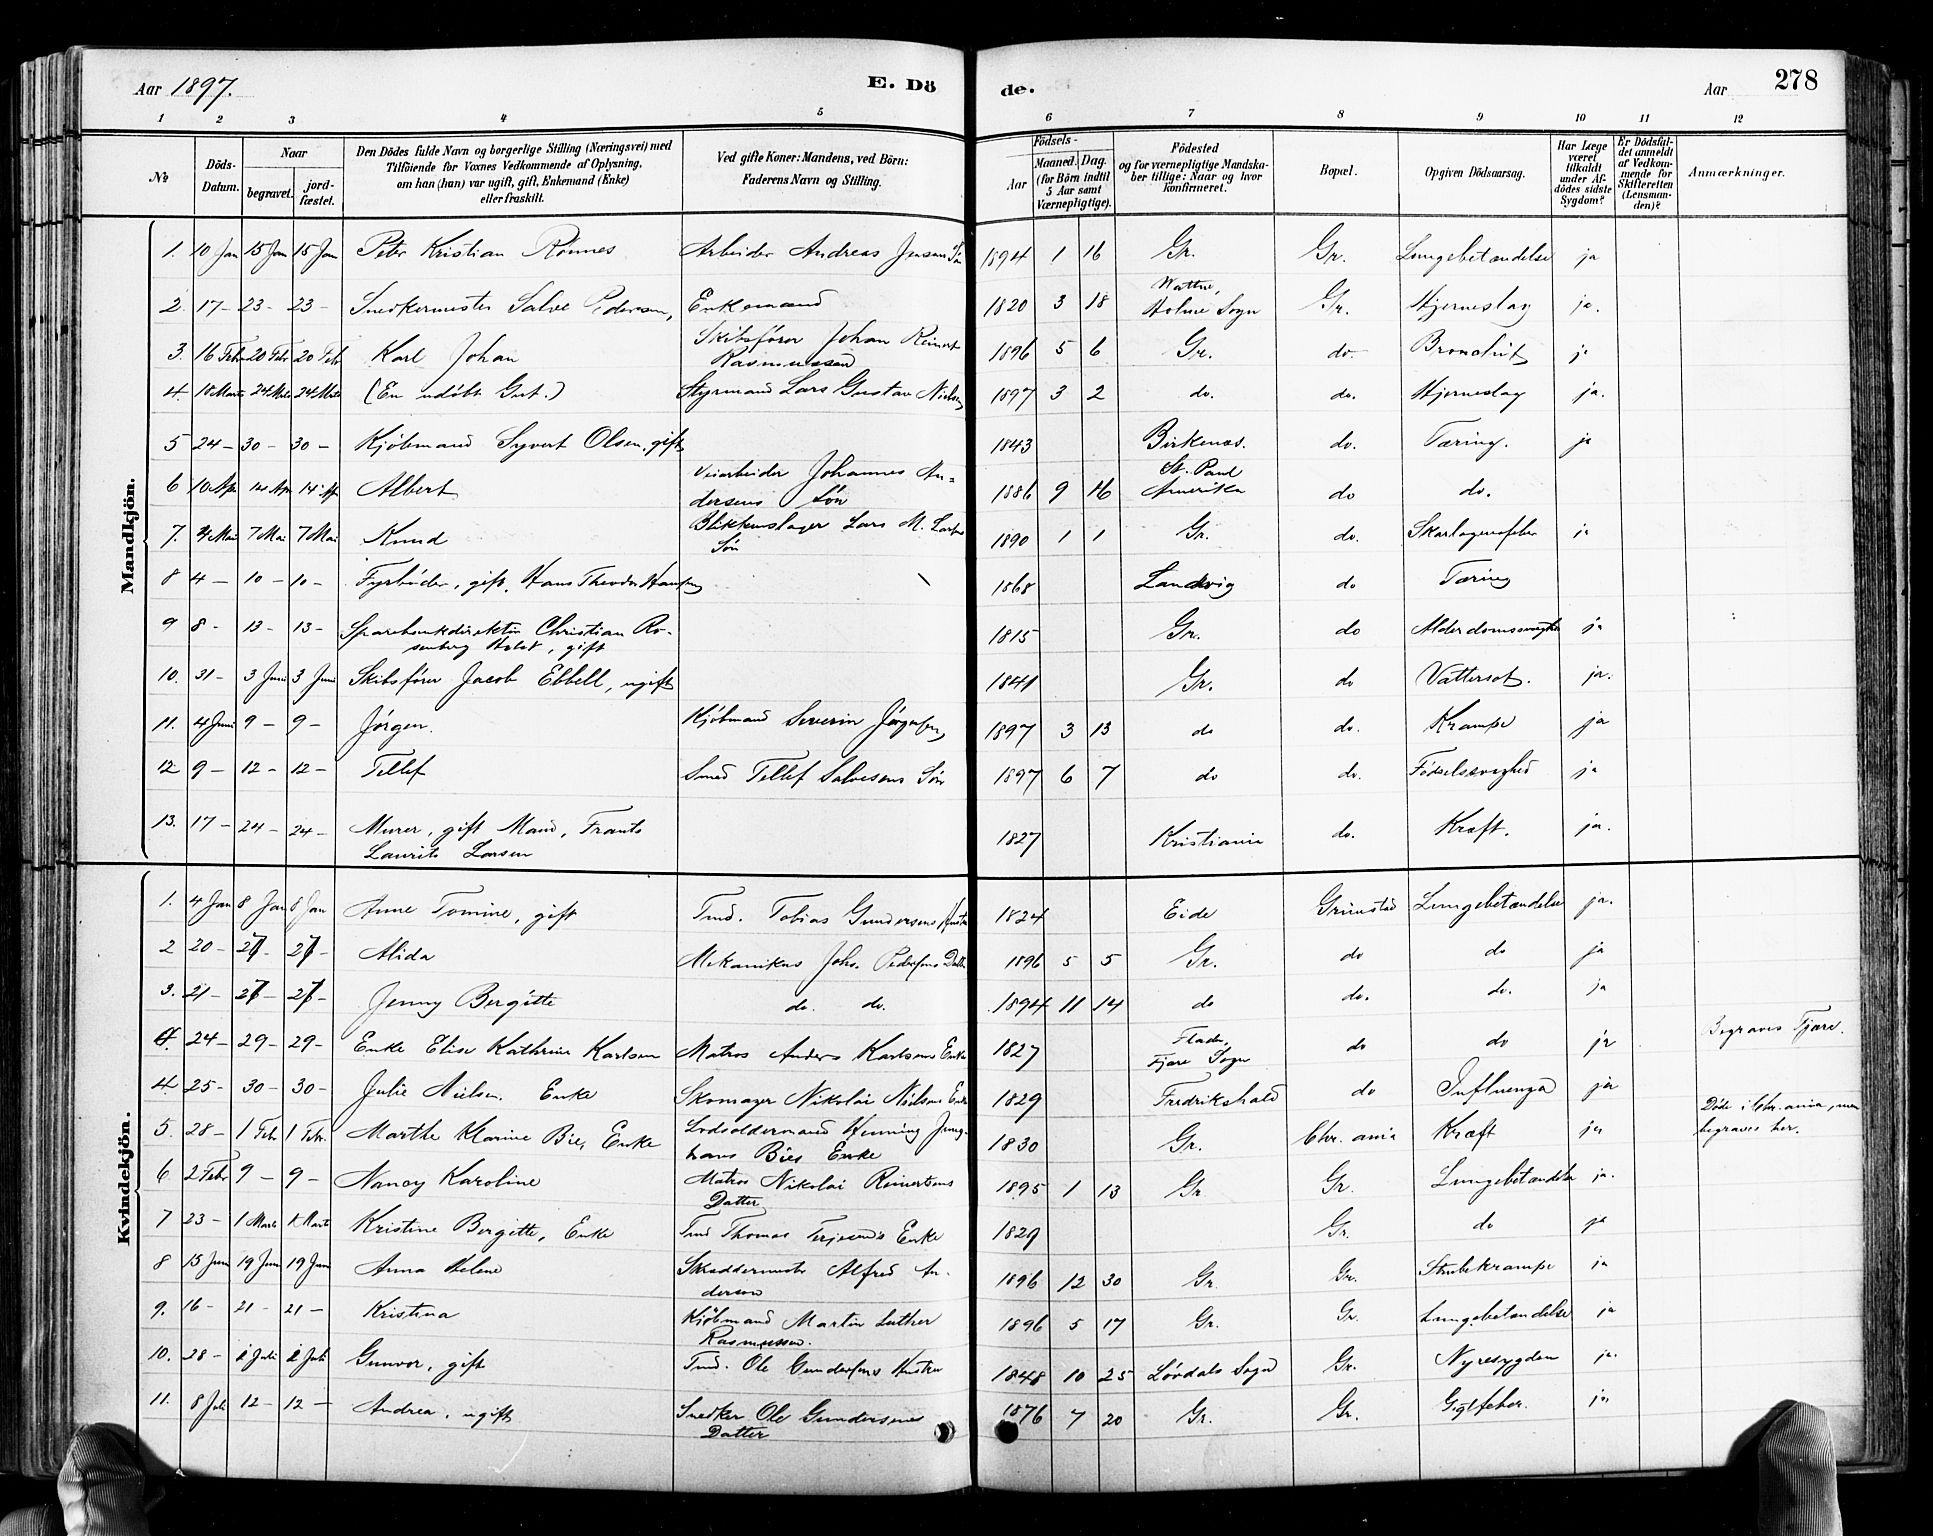 Aar 1897. E. Dö de. Aar 278
1 2 3 4 5 6 7 8 9 10 11 12
№ Döds-Datum. Naar begravet. jordfæstet. Den Dödes fulde Navn og borgerlige Stilling (Næringsvei) med Tilföiende for Voxnes Vedkommende af Oplysning, om han (hun) var ugift, gift, Enkemand (Enke) eller fraskilt. Ved gifte Koner: Mandens, ved Börn: Faderens Navn og Stilling. Födsels- Aar Maaned. Dag. (for Börn indtil 5 Aar samt Værnepligtige). Födested og for værnepligtige Mandskaber tillige: Naar og hvor konfirmeret. Bopæl. Opgiven Dödsaarsag. Har Læge været tilkaldt under Afdödes sidste Sygdom? Er Dödsfaldet anmeldt af Vedkommende for Skifteretten (Lensmanden)? Anmærkninger.
Mandkjön.
1. 10 Jan 15 Jan 15 Jan Peter Kristian Rønnes Arbeider Andreas Jensens Søn 1894 1 16 Gr. Gr. Lungebetændelse ja
2 17- 23- 23- Snedkermester Salve Pedersen, Enkemand 1820 3 18 Holme Sogn Gr. Hjerneslag ja.
3. 16 Febr 20 Febr 20 Febr Karl Johan Skibsfører Johan Reinert Rasmussen 1896 5 6 Gr. do. Bronchit ja
4. 18 Marts 24 Mrts 24 Mrts (En udøbt Gut.) Styrmand Lars Gustav Nielsen 1897 3 2 do. do. Hjerneslag ja.
5 24- 30- 30- Kjøbmand Syvert Olsen, gift 1843 Birkenæs. do. Tæring. ja
6 10 Apr 14 Apr 14 Ap Albert Veiarbeider Johannes Andersens Søn 1886 9 16 St. Paul Amerika do do.
7. 4 Mai 7 Mai 7 Mai Knud Blikkenslager Lars M. Larsens Søn 1890 1 1 Gr. do. Skarlagensfeber ja
8 4- 10- 10- Fyrbøder, gift, Hans Theodor Hansen 1868 Landvig do Tæring
9 8- 13- 13- Sparebankdirektør Christian Rosenberg Holst, gift 1815 Gr. do Alderdomssvaghed ja
10. 31- 3 Juni 3 Juni Skibsfører Jacob Ebbell, ugift 1841 Gr. do Vattersot. ja.
11. 4 Juni 9- 9- Jørgen. Kjøbmand Severin Jørgensen 1897 3 13 do do. Krampe ja
12 9- 12- 12- Tellef Smed Tellef Salvesens Søn 1897 6 7 do do. Fødselssvaghed ja
13. 17- 24- 24- Murer, gift Mand, Frants Laurits Larsen 1827 Kristiania do. Kræft. ja.
Kvindekjön.
1. 4 Jan 8 Jan 8 Jan Anne Tomine, gift Tmd. Tobias Gundersens Hustru 1824 Eide Grimstad Lungebetændelse ja.
2 20- 27- 27- Alida Mekanikus Johs. Pedersens Datter 1896 5 5 Gr. do do ja
3. 21- 27- 27- Jenny Bergitte do. do. 1894 11 14 do do. do. ja
24- 29- 29- Enke Elise Kathrine Karlsen Matros Anders Karlsens Enke 1827 Fjære Sogn do do ja Begraves Fjære.
4. 25- 30- 30- Julie Nielsen. Enke Skomager Nikolai Nielsens Enke 1829 Fredrikshald do Influenza ja
5. 28- 1 Febr 1 Febr. Marthe Marine Bie, Enke Lodsoldermand Henning Junghans Bies Enke 1830 Gr. Chr.ania Kræft ja Døde i Chr.ania, men begraves her.
6 2 Febr 9- 9- Nancy Karoline Matros Nikolai Reinertsens Datter 1895 1 13 Gr Gr. Lungebetændelse ja.
7 23- 1 Marts 1 Marts Kristine Bergitte, Enke Tmd Thomas Terjesens Enke 1829 Gr. do ja
8 15 Juni 19 Juni 19 Juni Anna Helene Skræddermester Alfred Andersen 1896 12 30 Gr. Gr. Strubekrampe ja
9. 16- 21- 21- Kristina Kjøbmand Martin Luther Rasmussen. 1896 5 17 Gr. Gr. Lungebetændelse ja
10. 28- 2 Juli 2 Juli Gunvor, gift Tmd. Ole Gundersens Hustru 1848 10 25 Løvdals Sogn Gr. Nyresygdom ja.
11. 8 Juli 12- 12- Andrea, ugift Snedker Ole Gundersens Datter 1876 7 20 Gr. Gr. Gigtfeber. ja